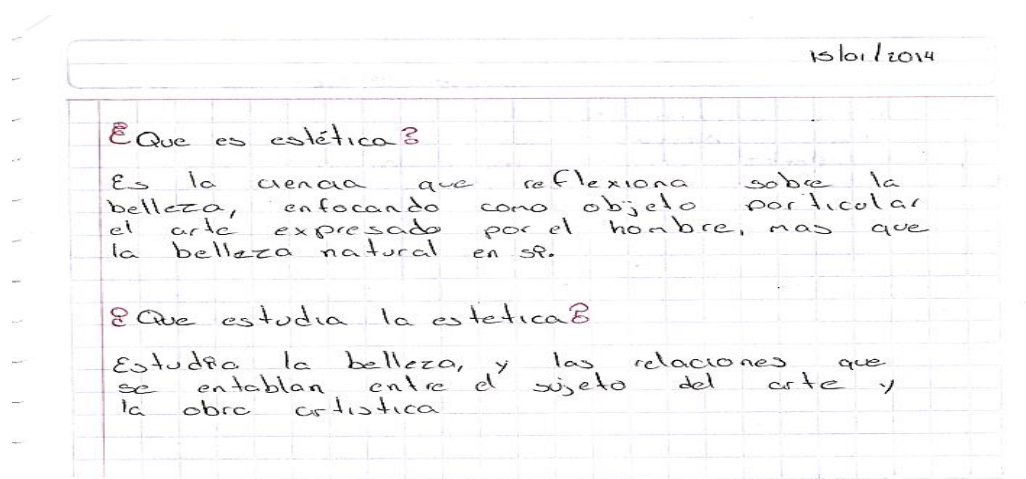 15/01/2014
¿Que es estética?
Es la ciencia que reflexiona sobre la
belleza, enfocando como objeto particular
el arte expresado por el hombre, mas que
la belleza natural en si.
¿Que estudia la estetica?
Estudia la belleza, y las relaciones que
se entablan entre el sujeto del arte y
la obra artistica